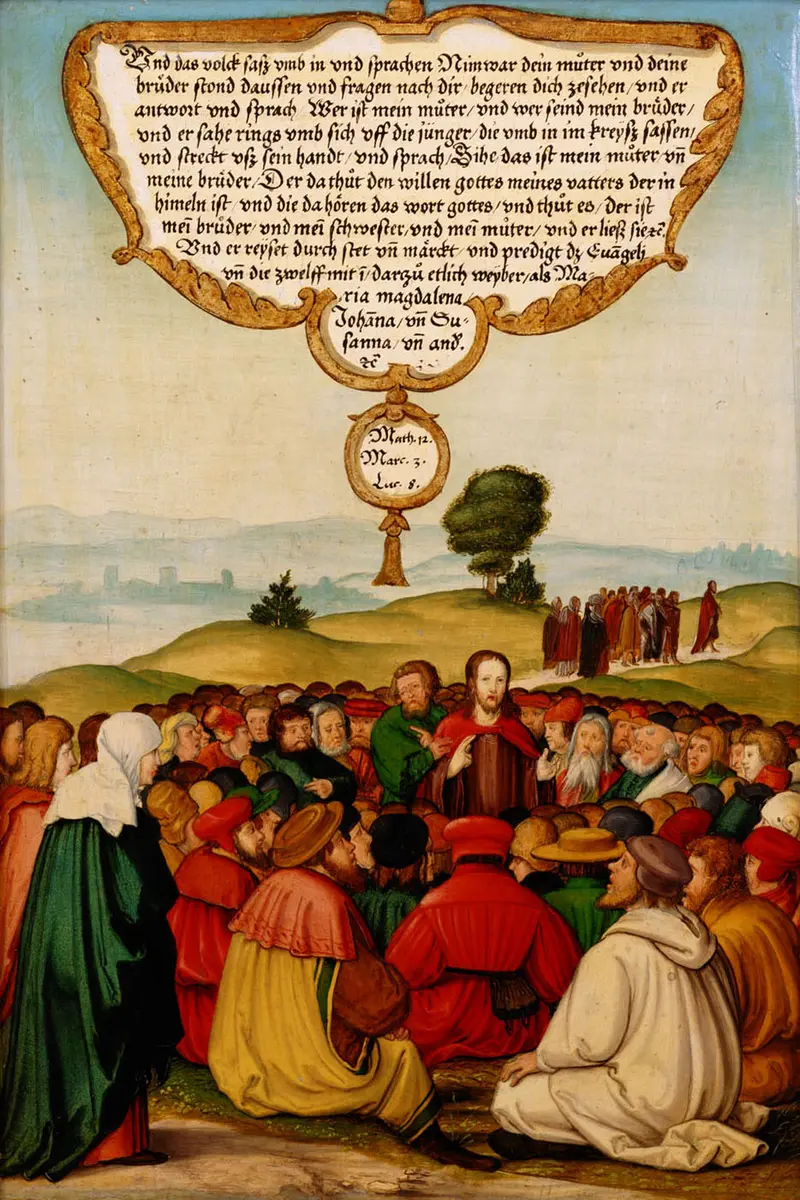 Vnd das volck sasz vmb in vnd sprachen Nim war dein muͦter vnd deine
bruͤder stond daussen vnd fragen nach dir/ begeren dich zesehen/ vnd er
antwort vnd sprach Wer ist mein muͦter/ vnd wer seind mein bruͤder/
vnd er sahe rings vmb sich vff die jünger/ die vmb in im kreysz sassen/
vnd streckt vsz sein handt/ vnd sprach/ Sihe das ist mein muͦter vn̄
meine bruͤder/ Der da thuͦt den willen gottes meines vatters der in
himeln ist/ vnd die da hören das wort gottes/ vnd thuͦt es/ der ist
mei͂ bruͦder/ vnd mei͂ schwester/ vnd mei͂ muͦter/ vnd er liesz sie ꝛc.
Vnd er reyset durch stet vn̄ märckt/ vnd predigt dz Euāgelj
vn̄ die zwelff mit ī/ darzuͦ etlich weyber/ als Ma-
ria magdalena/
Johāna/ vn̄ Su-
sanna/ vn̄ and̕.
ꝛc̄
Math. 12.
Marc. 3.
Luc. 8.